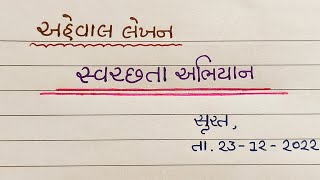 અહેવાલ લેખન
સ્વચ્છતા અભિયાન
સૂરત,
તા. 23-12-2022